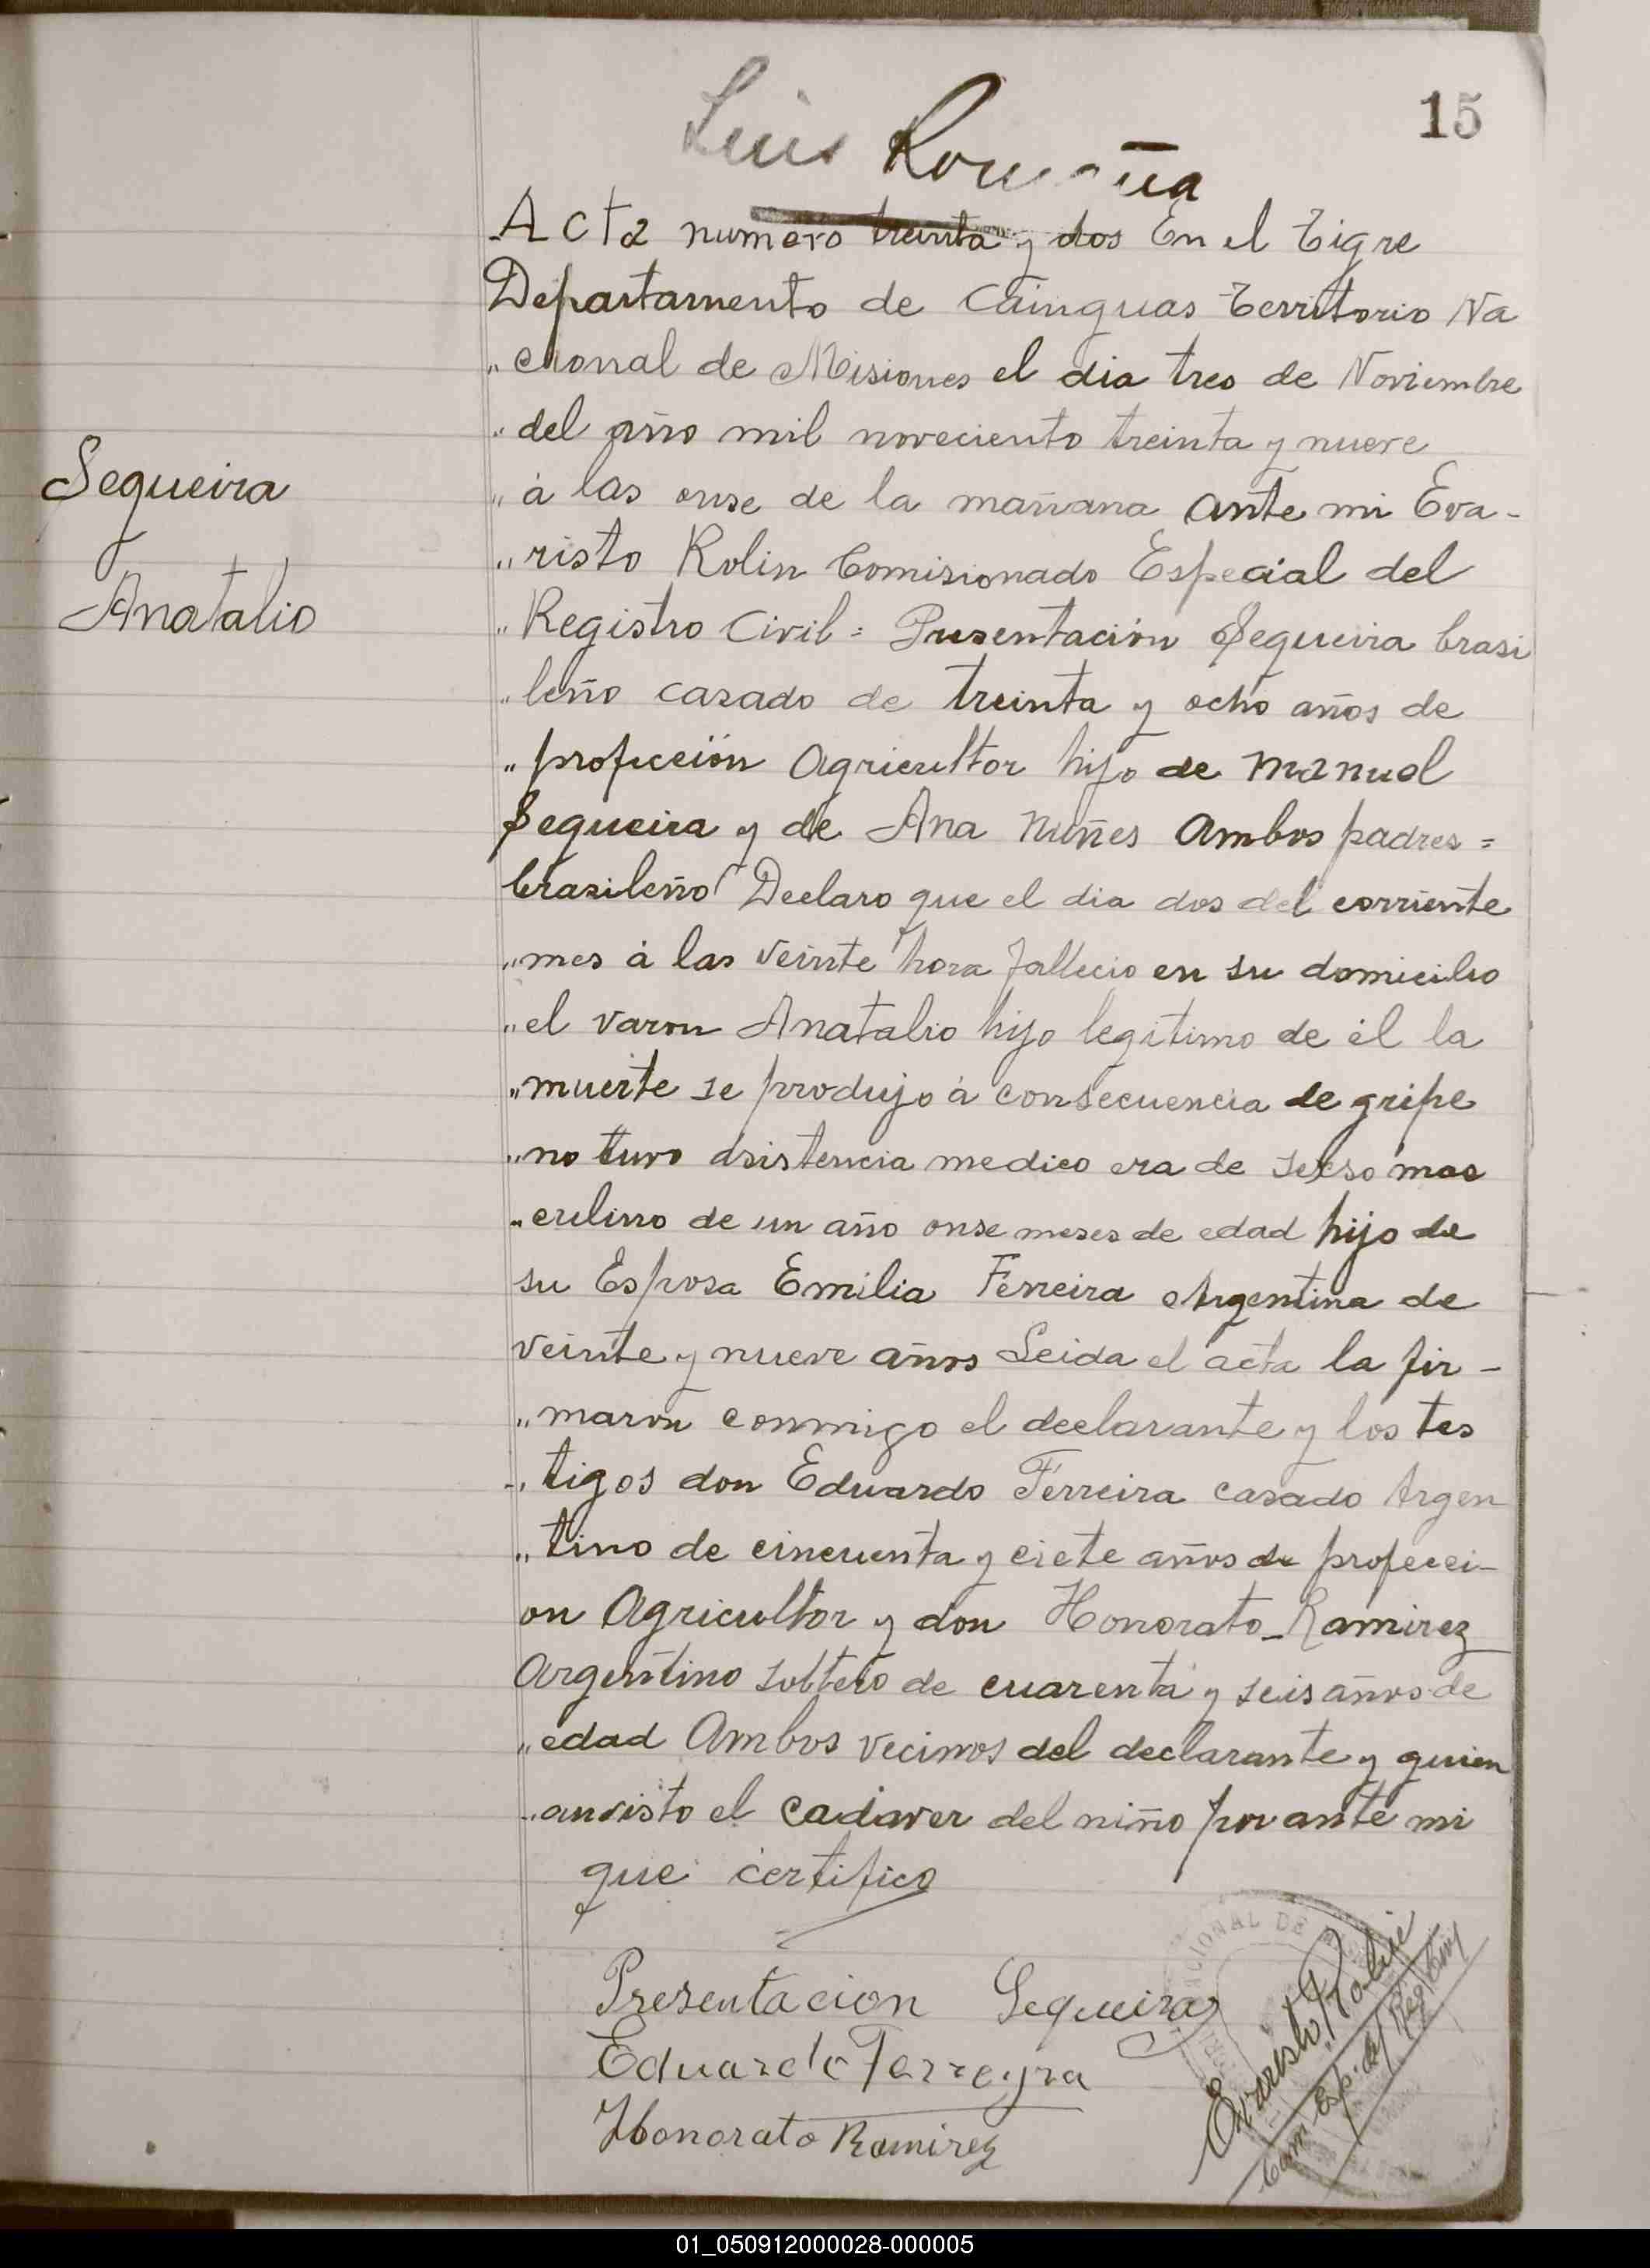 15
Luis
Acta numero treinta y dos En el Tigre
Departamento de Cainguas Territorio Na
" cional de Misiones el dia tres de Noviembre
" del año mil noveciento treinta y nueve
Sequeira
" á las onse de la mañana ante mi Eva-
" risto Rolin Comisionado Especial del
Anatalio
" Registro Civil = Presentación Sequeira brasi
" leño casado de treinta y ocho años de
" profección Agricultor hijo de Manuel
Sequeira y de Ana Nuñes Ambos padres =
brasileño Declaro que el dia dos del corriente
" mes á las veinte hora fallecio en su domicilio
" el varon Anatalio hijo legitimo de él la
" muerte se produjo á consecuencia de gripe
" no tuvo asistencia medico era de sexso mas
" culino de un año onse meses de edad hijo de
su Esposa Emilia Ferreira Argentina de
veinte y nueve años Leida el acta la fir-
" maron conmigo el declarante y los tes
" tigos don Eduardo Ferreira casado Argen
" tino de cincuenta y ciete años de profecci-
on Agricultor y don Honorato Ramirez
Argentino soltero de cuarenta y seis años de
" edad Ambos vecinos del declarante y quien
" anvisto el cadaver del niño por ante mi
que certifico
Presentacion Sequeira
Eduardo Ferreyra
Honorato Ramirez
Evaristo Rolin
Com Esp. del Reg Civil
NACIONAL DE
01_050912000028-000005